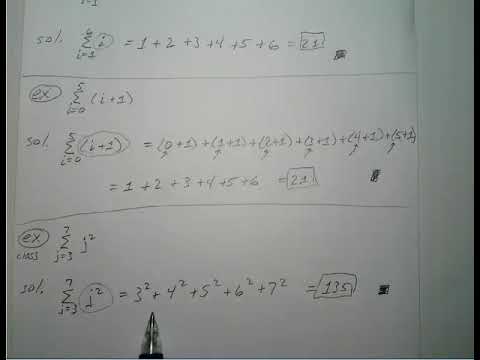 i=1
sol. ∑_{i=1}^{6} i = 1 + 2 + 3 + 4 + 5 + 6 = 21
ex ∑_{i=0}^{5} (i+1)
sol. ∑_{i=0}^{5} (i+1) = (0+1)+(1+1)+(2+1)+(3+1)+(4+1)+(5+1)
= 1 + 2 + 3 + 4 + 5 + 6 = 21
ex ∑_{j=3}^{7} j²
class
sol. ∑_{j=3}^{7} j² = 3² + 4² + 5² + 6² + 7² = 135